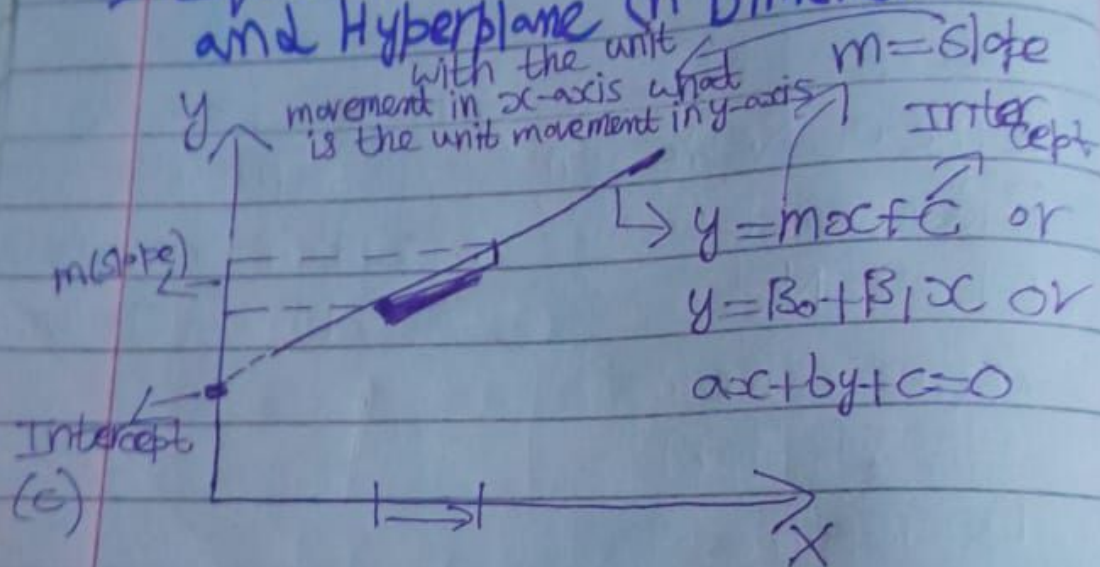 and Hyperplane (n Dimen
with the unit
movement in x-axis what
is the unit movement in y-axis
m=slope
Intercept
y
m(slope)
y=mx+C or
y=β₀+β₁x or
ax+by+c=0
Intercept
(c)
X